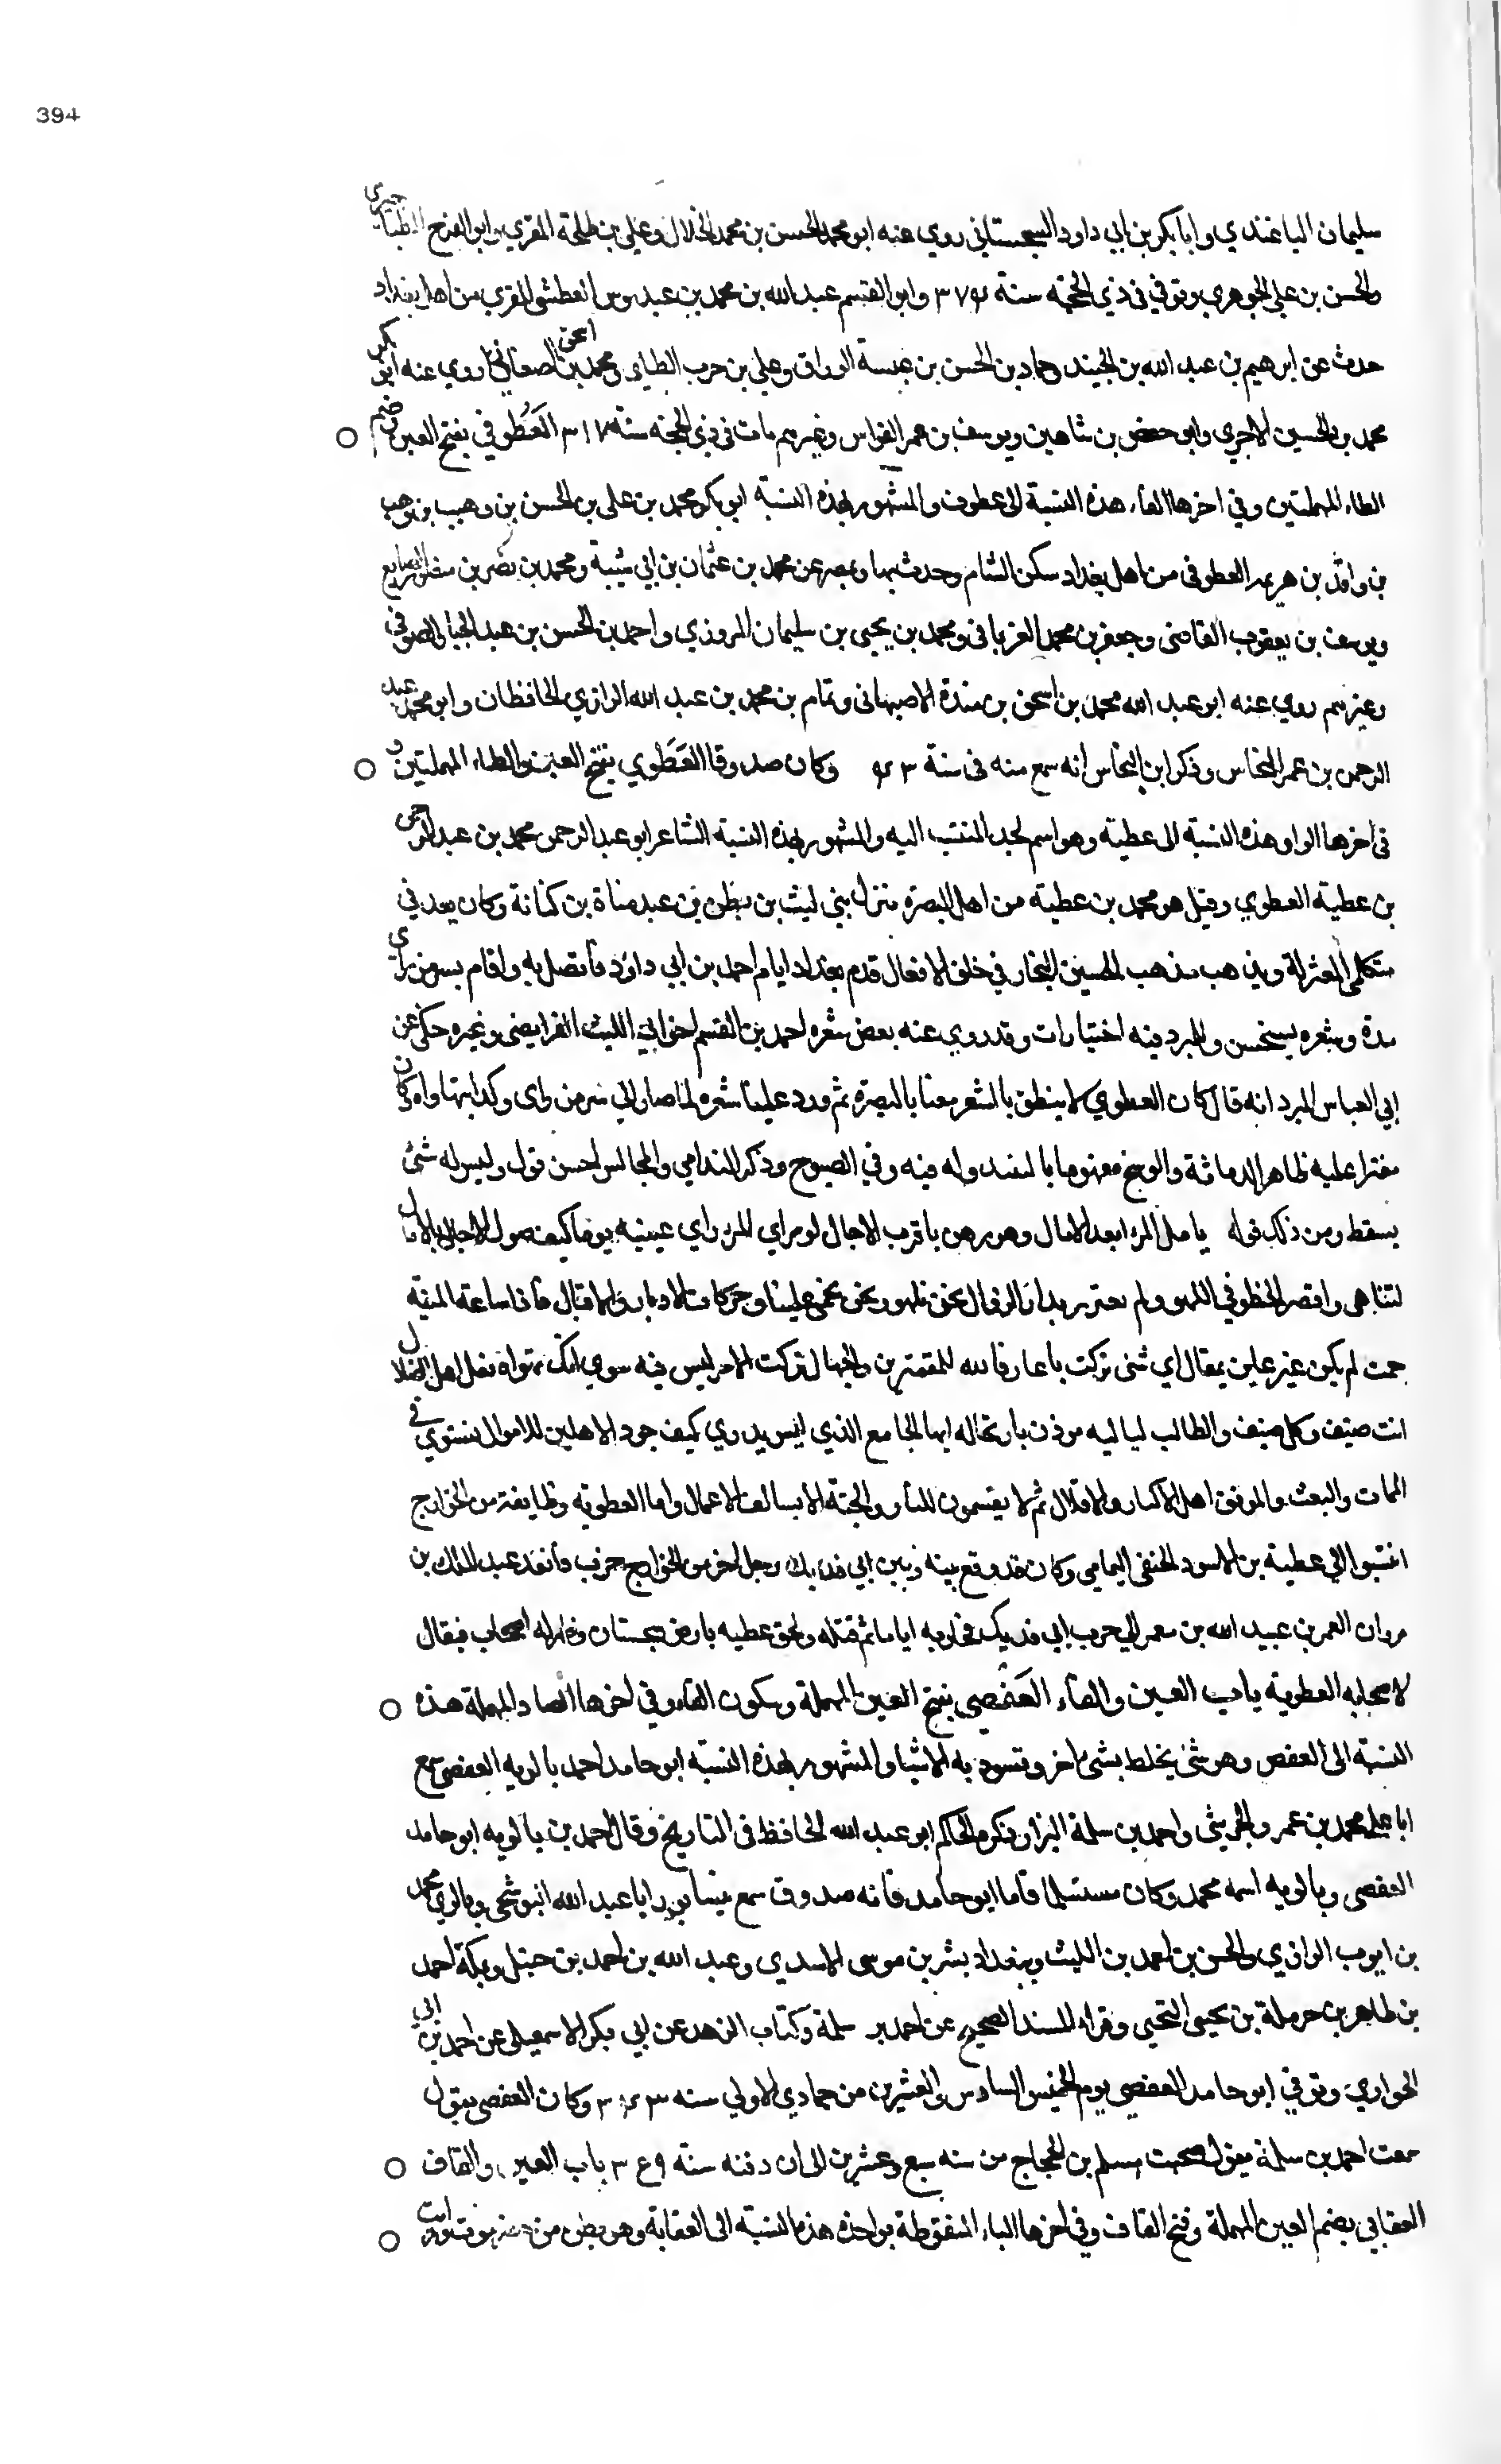 394
سليمان الباغندي وابا بكر بن ابي داود السجستاني روي عنه ابو محمد الحسن بن محمد الخلال وعلي بن طلحة المقري وابو الفرج الطناجيري
والحسن بن علي الجوهري وتوفي في ذي الحجة سنة وابو القسم عبد الله بن محمد بن عبدوس العطشي المقري من اهل بغداد
حدث عن ابرهيم بن عبد الله بن الجنيد وحماد بن الحسن بن عنبسة الوراق وعلي بن حرب الطايي ومحمد بن اسحق الصغاني روي عنه ابو بكر
محمد بن الحسين الاجري وابو حفص بن شاهين ويوسف بن عمر القواس وغيرهم مات في ذي الحجة سنة ٣١٧ العَطُوفي بفتح العين وضم
الطاء المهملتين وفي اخرها الفاء هذه النسبة الى عطوف والمشهور بهذه النسبة ابو بكر محمد بن علي بن الحسن بن وهيب بن وهب
بن واقد بن هرثمه العطوفي من اهل بغداد سكن الشام وحدث بها وبمصر عن محمد بن عثمان بن ابي شيبة ومحمد بن نصر بن منصور الصايغ
ويوسف بن يعقوب القاضي وجعفر بن محمد الفريابي ومحمد بن يحيى بن سليمان المروزي واحمد بن الحسن بن عبد الجبار الصوفي
وغيرهم روي عنه ابو عبد الله محمد بن اسحق بن مندة الاصبهاني وتمام بن محمد بن عبد الله الرازي الحافظان وابو محمد عبد
الرحمن بن عمر النحاس وذكر ابن النحاس انه سمع منه في سنة وكان صدوقا العَطَوي بفتح العين والطاء المهملتين و
في اخرها الواو هذه النسبة الى عطية وهو اسم لجد المنتسب اليه والمشهور بهذه النسبة الشاعر ابو عبد الرحمن محمد بن عبد الرحمن
بن عطية العطوي وقيل هو محمد بن عطية من اهل البصرة منزل بني ليث بن بطن بن عبد مناة بن كنانة وكان يعد في
متكلمي المعتزلة ويذهب مذهب الحسين النجار في خلق الافعال قدم بغداد ايام احمد بن ابي داود فاتصل به واقام بسر من راى
مدة وشعره يستحسن وللمبرد فيه اختيارات وقد روي عنه بعض شعره احمد بن القسم اخو ابي الليث الفرايضي وغيره حكي عن
ابي العباس المبرد انه قال كان العطوي لا ينطق بالشعر معنا بالبصرة ثم ورد علينا شعره لما صار الى سر من راى وكنا نتهاداه وكان
مقترا عليه ظاهر الدماثة والوسخ منهوما بالنبيذ وله فيه وفي الصبوح وذكر الندامى والمجالس احسن قول وليس له شئ
يسقط ومن ذلك قوله يامل المرء ابعد الامال وهو رهن باقرب الاجال لو راي المرء راي عينيه يوما كيف صول الاجال بالامال
لتناهى واقصر الخطو في اللهو ولم يغتر بدار الزوال نحن نلهو ونحن علينا حركات الادبار والاقبال فاذا ساعة المنية
حمت لم يكن غير عاير بمقال اي شئ تركت يا عارفا بالله للمقترين والجهال تركت الامر ليس فيه سوى انك تهواه فعل اهل الضلال
انت ضيف وكل ضيف والطالب لياليه موذن بارتحاله ايها الجامع الذي ليس يدري كيف جود الاهلين للاموال يستوي في
الممات والبعث والموقف اهل الاكثار والاقلال ثم لا يقسمون للنار والجنة الا بسالف الاعمال واما العطوية وطايفة من الخوارج
انتسبوا الي عطية بن الاسود الحنفي اليمامي وكان قد وقع بينه وبين ابي فديك رجل اخر من الخوارج حرب وانفذ عبد الملك بن
مروان العمر بن عبيد الله بن معمر الي حرب ابي فديك فحاربه اياما ثم قتله ولحق عطيه بارض سجستان وظهر له اصحاب فيقال
لاصحابه العطوية باب العين والفاء العَفْصي بفتح العين المهملة وسكون الفاء وفي اخرها الصاد المهملة هذه
النسبة الى العفص وهو شئ يخلط بشئ اخر وتسود به الاشيا والمشهور بهذه النسبة ابو حامد احمد بالويه العفصي سمع
ابا علي محمد بن عمرو الحرشي واحمد بن سلمة البزار ذكره الحاكم ابو عبد الله الحافظ في التاريخ وقال احمد بن بالويه ابو حامد
العفصي وبالويه اسمه محمد وكان مستمليا فاما ابو حامد فانه صدوق سمع بنيسابور ابا عبد الله البوشنجي وبالري محمد
بن ايوب الرازي والحسن بن احمد بن الليث وببغداد بشر بن موسى الاسدي وعبد الله بن احمد بن حنبل وبمكة احمد
بن طاهر بن حرملة بن يحيى التجيبي وقراء المسند الصحيح عن احمد بن سلمة وكتاب الزهد عن ابي بكر الاسمعيلي عن احمد بن ابي
الحواري وتوفي ابو حامد العفصي يوم الخميس السادس والعشرين من جمادي الاولي سنه وكان العفصي يقول
سمعت احمد بن سلمة يقول صحبت مسلم بن الحجاج من سنه سبع وعشرين الى ان دفنه سنة باب العين والقاف
العقابي بضم العين المهملة وفتح القاف وفي اخرها الباء المنقوطة بواحدة هذه النسبة الى العقابة وهو بطن من حضرموت